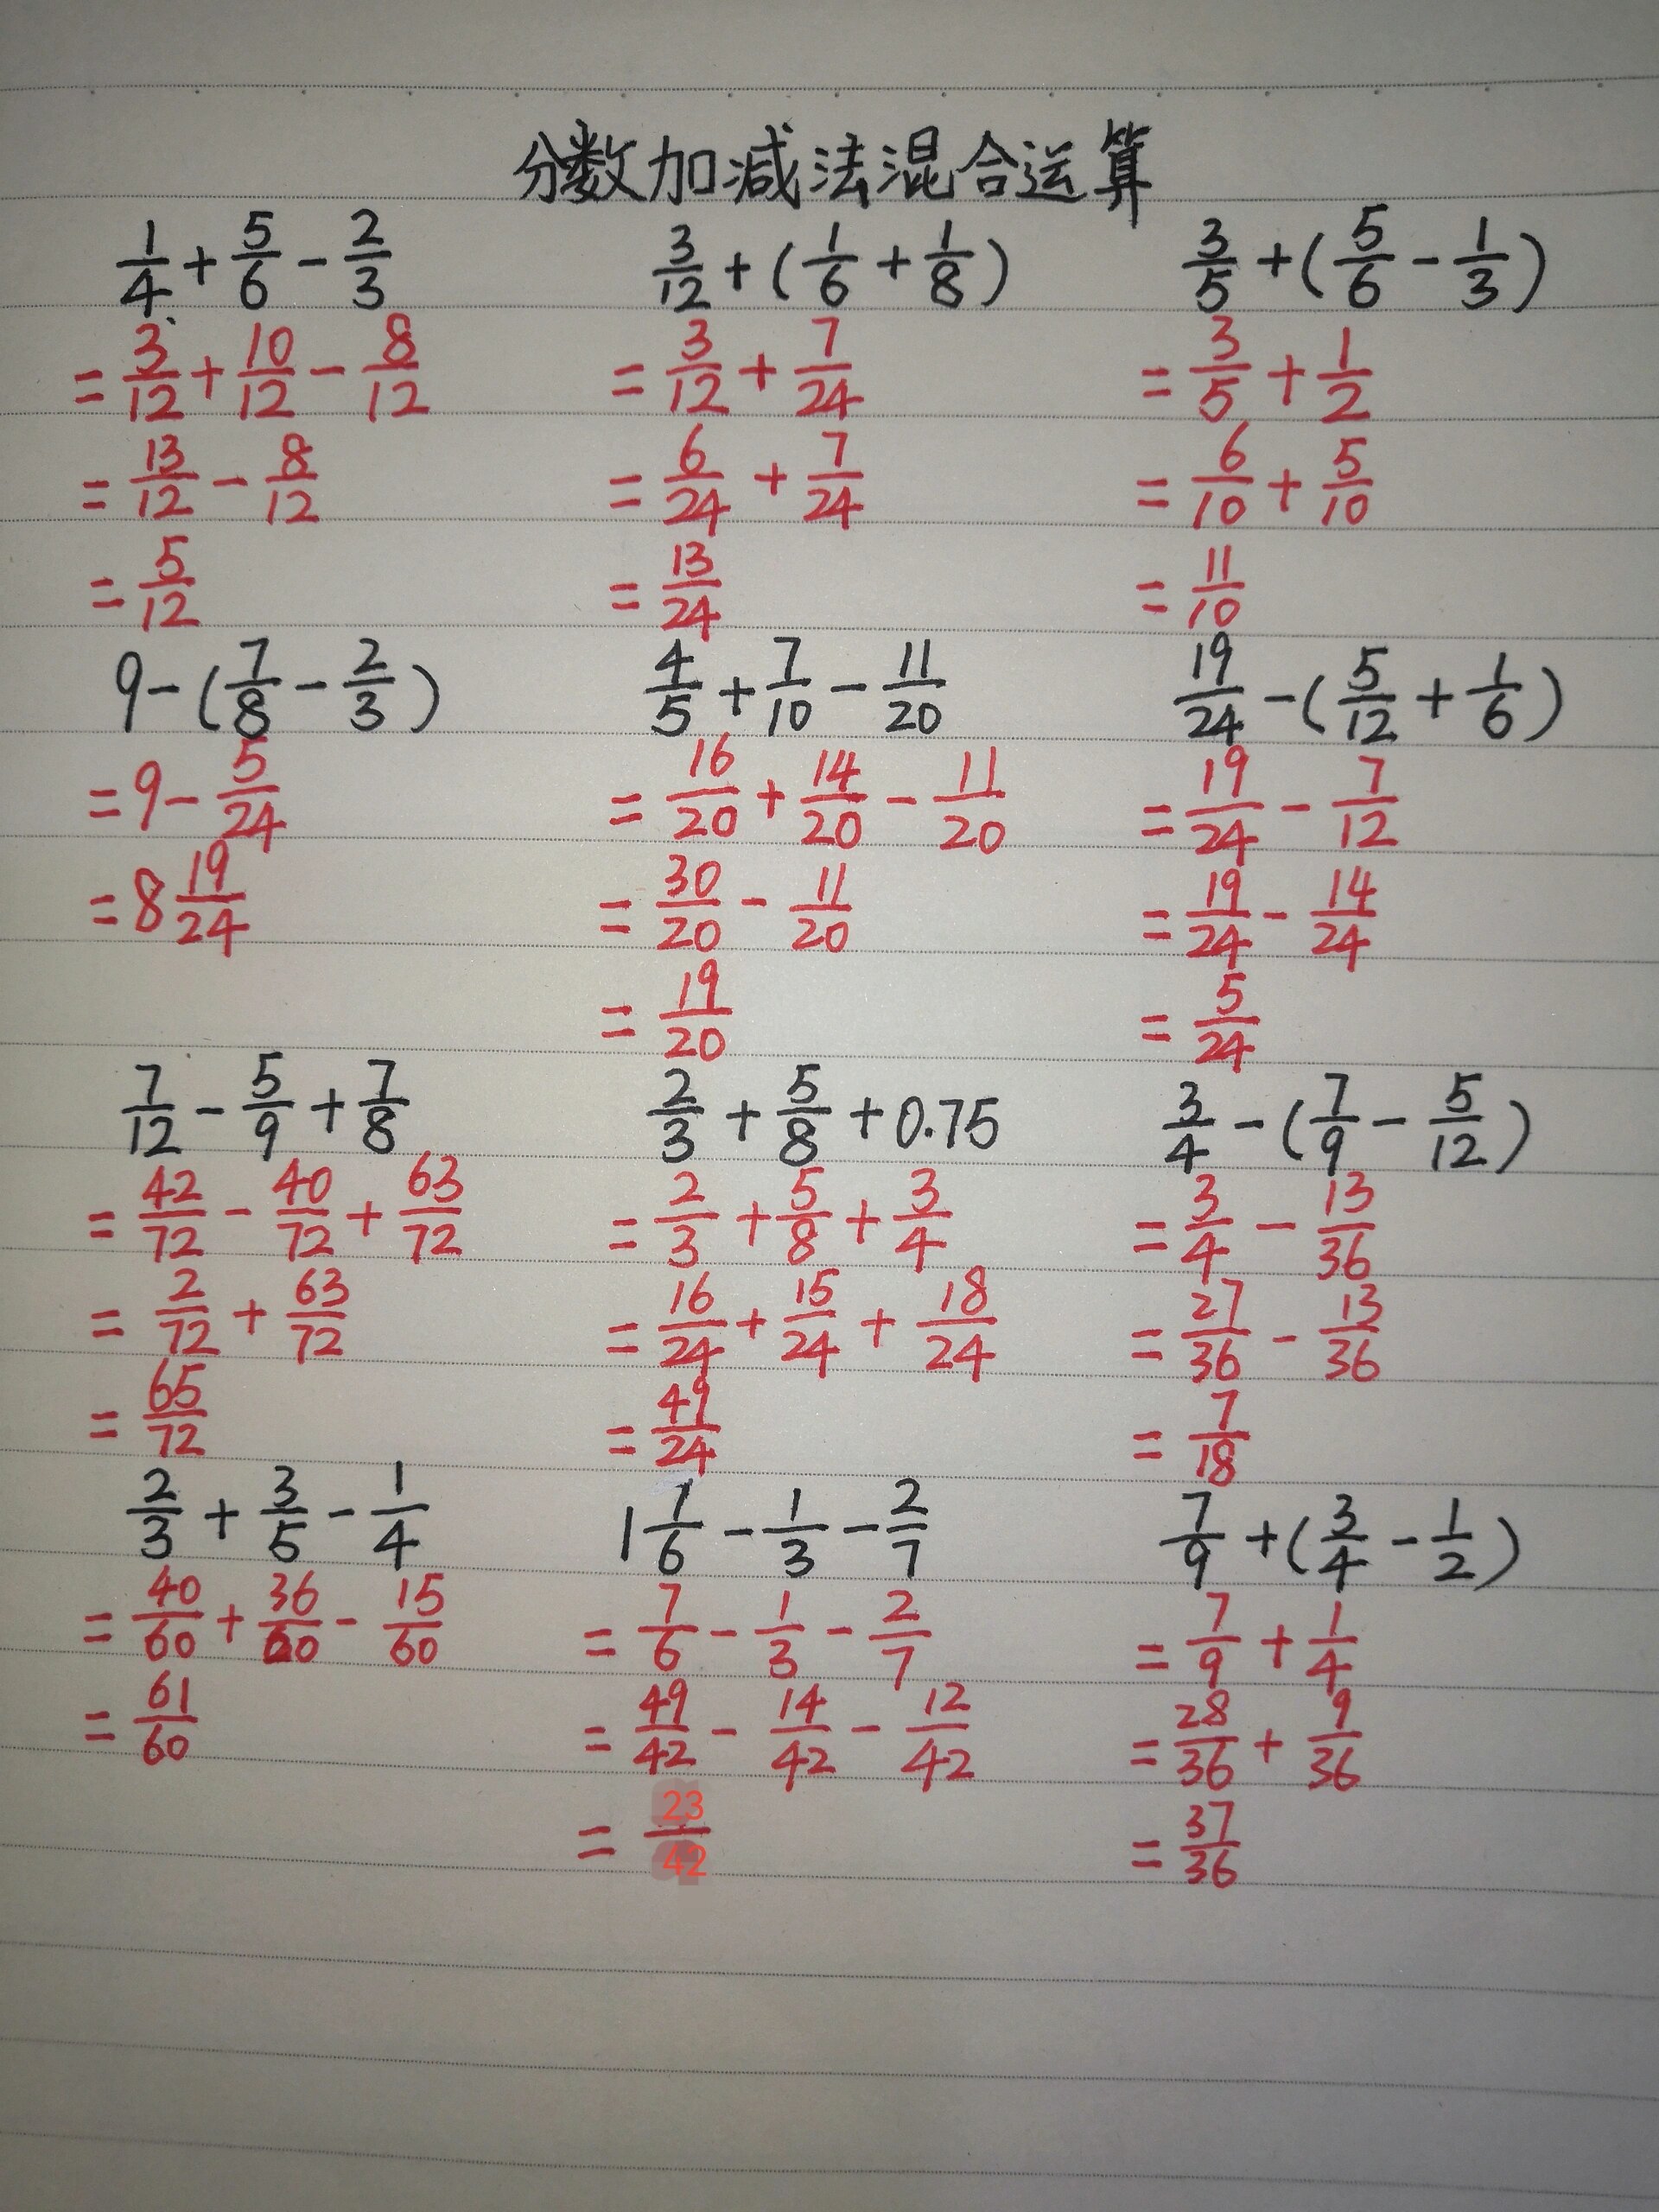 分数加减法混合运算
1/4 + 5/6 - 2/3
= 3/12 + 10/12 - 8/12
= 13/12 - 8/12
= 5/12
3/12 + (1/6 + 1/8)
= 3/12 + 7/24
= 6/24 + 7/24
= 13/24
3/5 + (5/6 - 1/3)
= 3/5 + 1/2
= 6/10 + 5/10
= 11/10
9 - (7/8 - 2/3)
= 9 - 5/24
= 8 19/24
4/5 + 7/10 - 11/20
= 16/20 + 14/20 - 11/20
= 30/20 - 11/20
= 19/20
19/24 - (5/12 + 1/6)
= 19/24 - 7/12
= 19/24 - 14/24
= 5/24
7/12 - 5/9 + 7/8
= 42/72 - 40/72 + 63/72
= 2/72 + 63/72
= 65/72
2/3 + 5/8 + 0.75
= 2/3 + 5/8 + 3/4
= 16/24 + 15/24 + 18/24
= 49/24
3/4 - (7/9 - 5/12)
= 3/4 - 13/36
= 27/36 - 13/36
= 7/18
2/3 + 3/5 - 1/4
= 40/60 + 36/60 - 15/60
= 61/60
1 1/6 - 1/3 - 2/7
= 7/6 - 1/3 - 2/7
= 49/42 - 14/42 - 12/42
= 23/42
7/9 + (3/4 - 1/2)
= 7/9 + 1/4
= 28/36 + 9/36
= 37/36